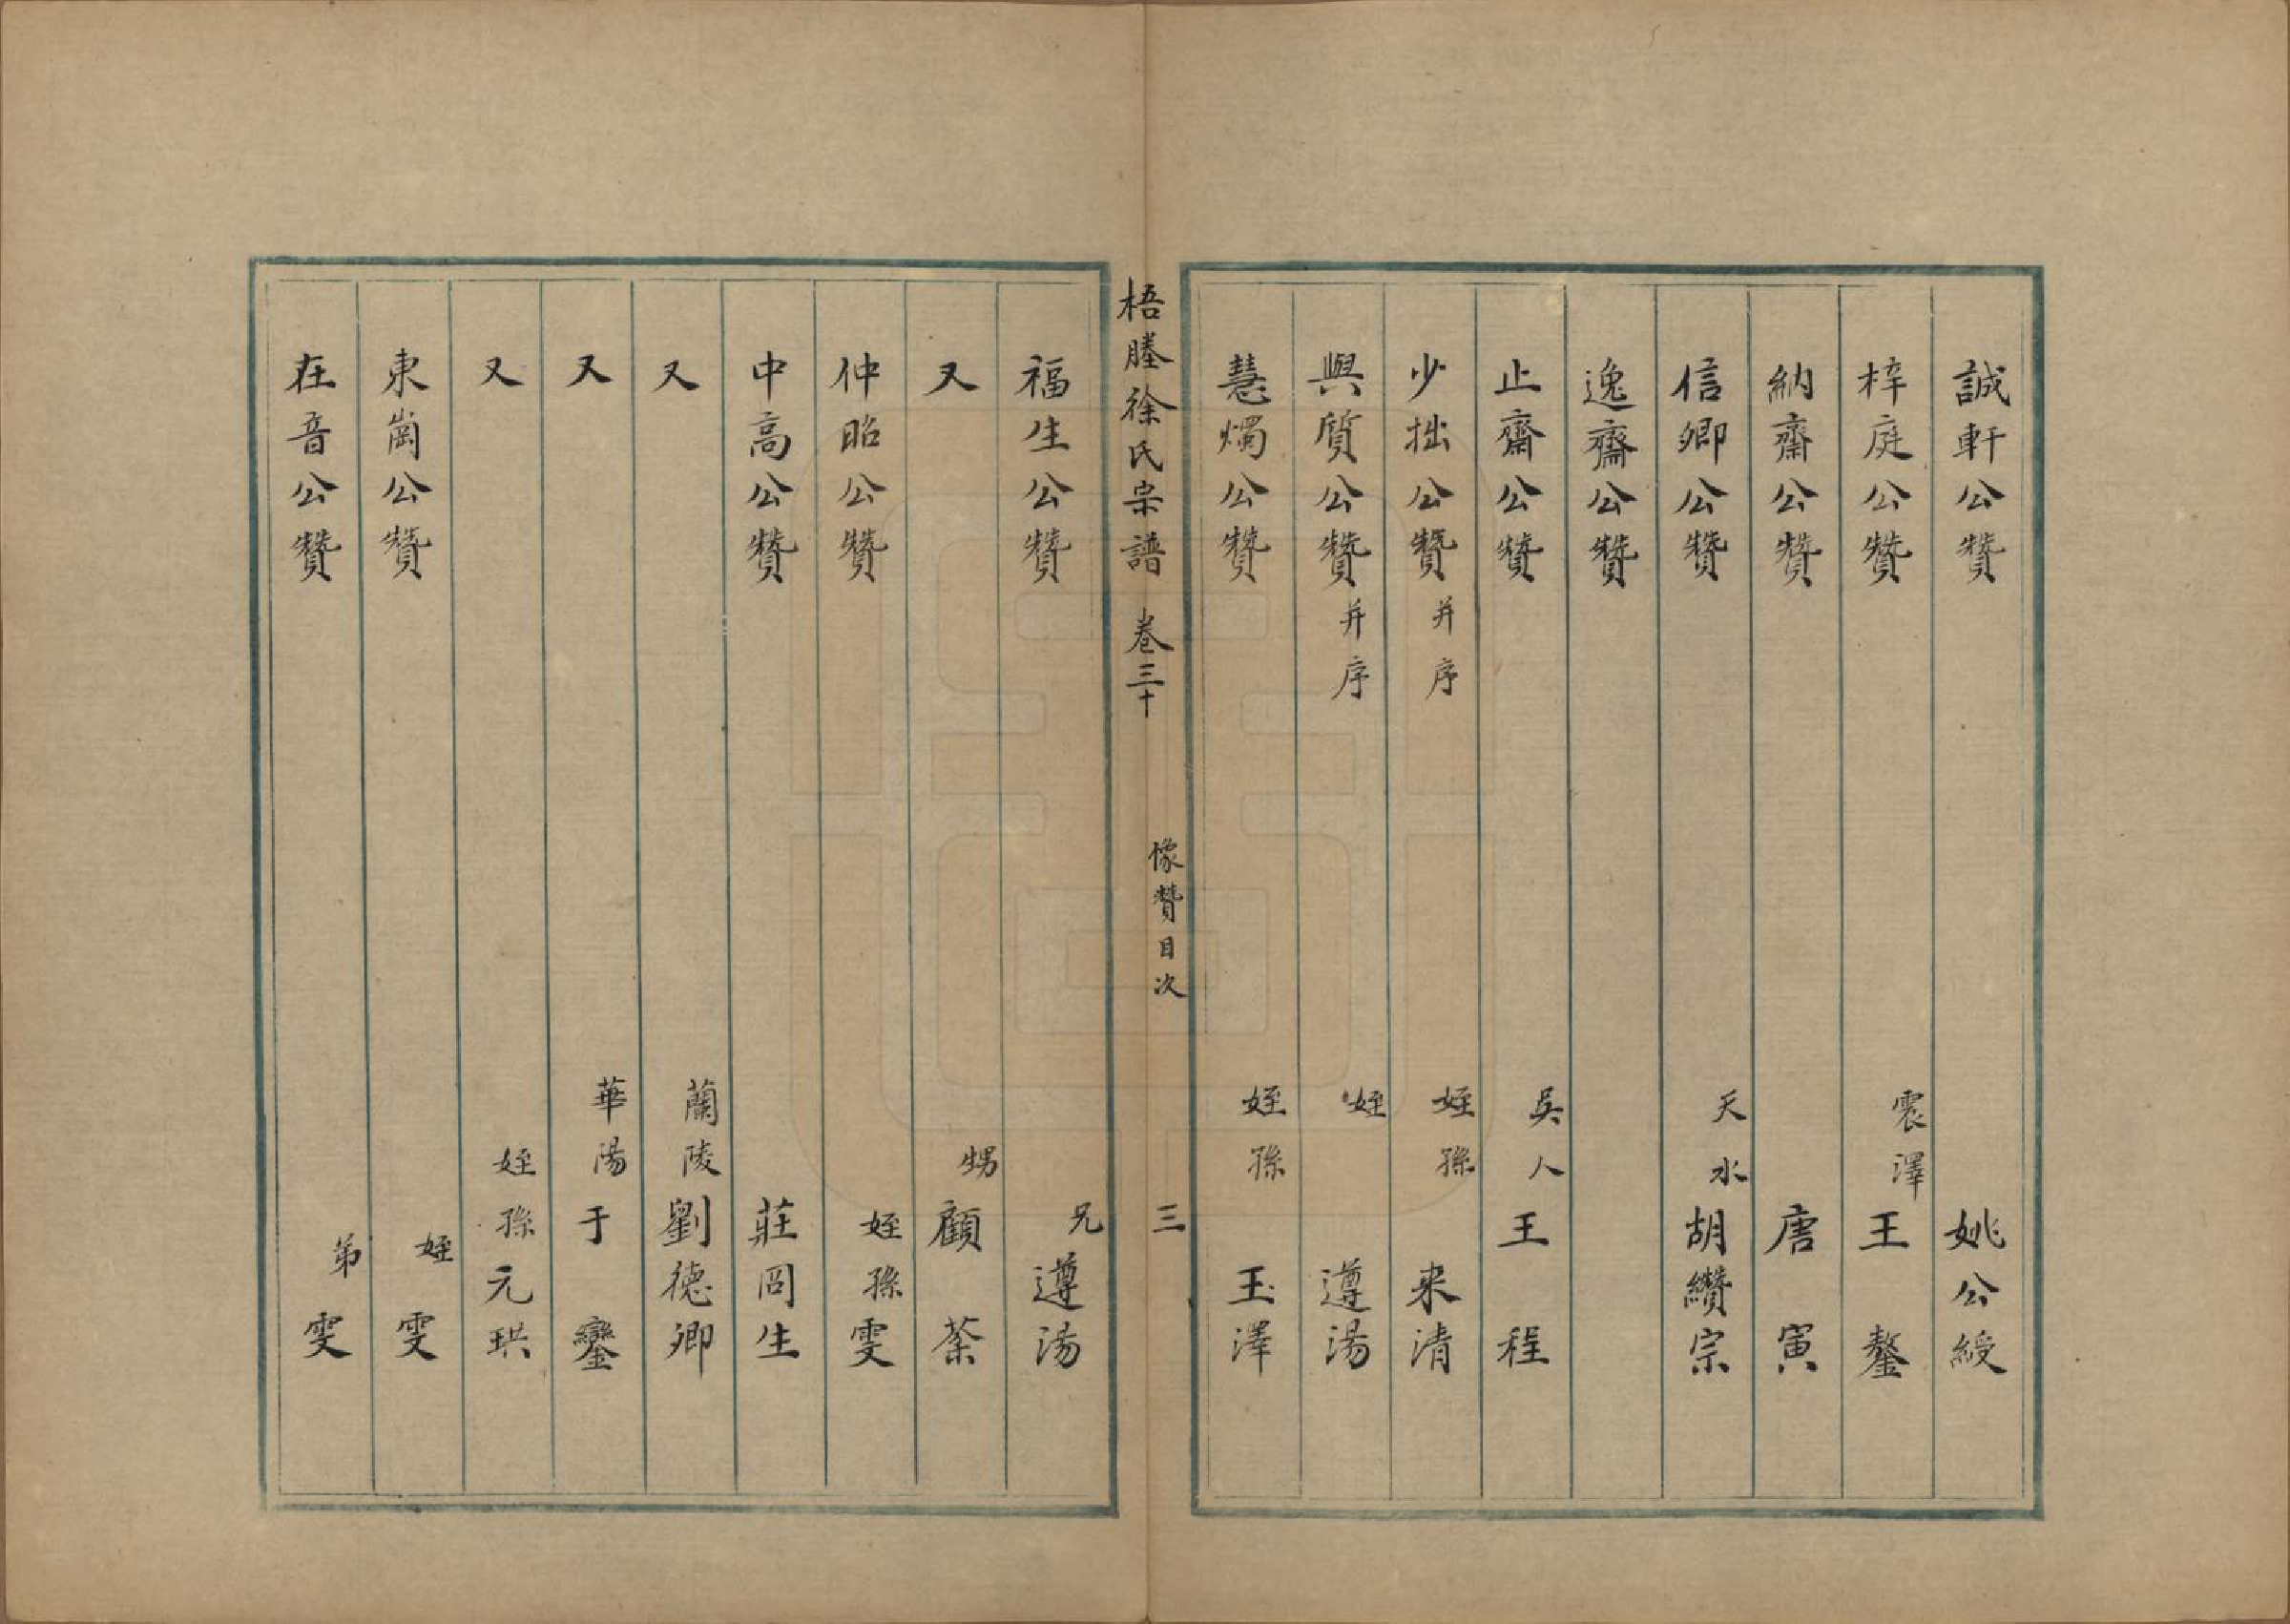 誠軒公贊 姚公綬
梓庭公贊 震澤王鏊
納齋公贊 唐寅
信卿公贊 天水胡纘宗
逸齋公贊
止齋公贊 吳人王程
少拙公贊并序 姪孫來清
與質公贊并序 姪遵湯
慧燭公贊 姪孫玉澤
梧塍徐氏宗譜 卷三十 像贊目次 三
福生公贊 兄遵湯
又 甥顧荼
仲昭公贊 姪孫雯
中高公贊 莊岡生
又 蘭陵劉德卿
又 華陽于鑾
又 姪孫元珙
東崗公贊 姪雯
在音公贊 弟雯